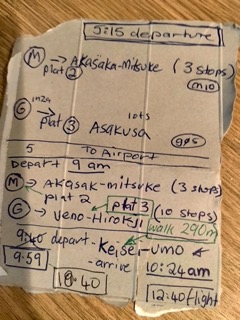 5:15 departure
M → Akasaka-Mitsuke (3 stops)
plat 2
M10
G Ginza
→ plat 3 Asakusa
lots
G05
5 To Airport
Depart 9 am
M → Akasak-mitsuke (3 stops)
plat 2
G → Ueno-Hirokji (10 stops)
plat 3
walk 290m
9:40 depart - Keisei-Umo
9:59
- arrive 10:24am
10:40
12:40 flight